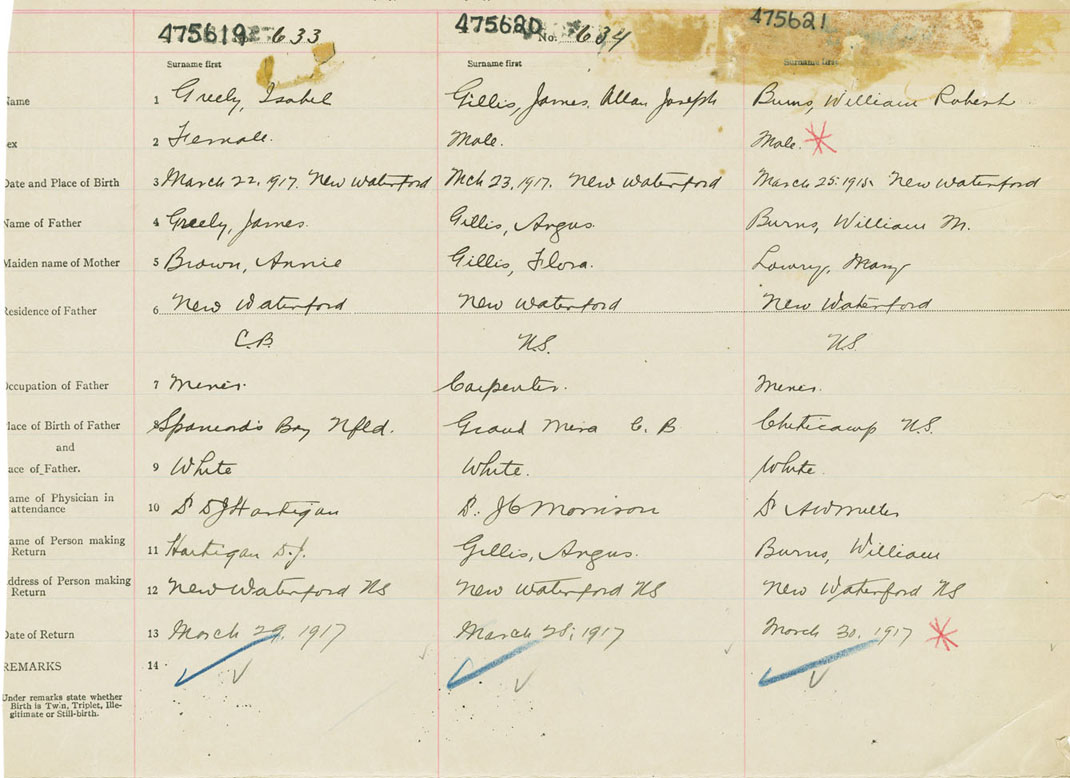 475619 633 475620 No. 634 475621
Surname first Surname first Surname first
Name 1 Greely, Isabel Gillis, James Allan Joseph Burns, William Robert
ex 2 Female. Male. Male.
Date and Place of Birth 3 March 22, 1917. New Waterford Mch 23, 1917. New Waterford March 25, 1915. New Waterford
Name of Father 4 Greely, James. Gillis, Angus. Burns, William M.
Maiden name of Mother 5 Brown, Annie Gillis, Flora. Lowry, Mary
Residence of Father 6 New Waterford New Waterford New Waterford
C.B. N.S. N.S.
Occupation of Father 7 Miner. Carpenter. Miner.
lace of Birth of Father 8 Spaniard's Bay Nfld. Grand Mira C. B Cheticamp N.S.
and
ace of Father. 9 White White. White.
ame of Physician in
attendance 10 Dr D J Hartigan Dr. J C Morrison Dr A W Miller
ame of Person making
Return 11 Hartigan D. J. Gillis, Angus. Burns, William
ddress of Person making
Return 12 New Waterford NS New Waterford NS New Waterford NS
Date of Return 13 March 29, 1917 March 28, 1917 March 30, 1917
REMARKS 14
Under remarks state whether
Birth is Twin, Triplet, Ille-
gitimate or Still-birth.